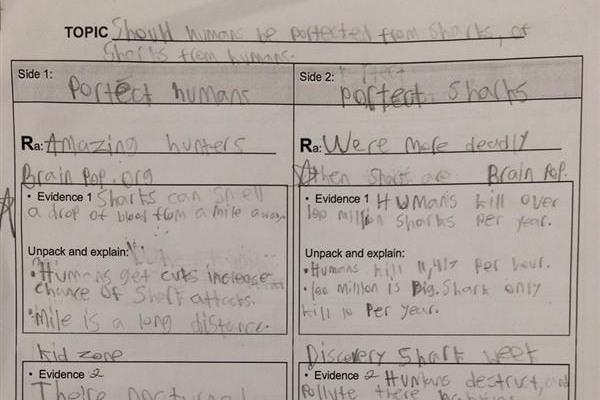 TOPIC Should humans be portected from Sharks, or
Sharks from humans.
Side 1:
Portect humans
Ra: Amazing hunters
Brain Pop.org
• Evidence 1 Sharks can smell
a drop of blood from a mile away.
Unpack and explain:
• Humans get cuts increase
chance of Shark attacks.
• Mile is a long distance.
Kid zone
• Evidence 2
There nocturnal
Side 2:
portect Sharks
Ra: Were more deadly
then Sharks are Brain Pop.
• Evidence 1 Humans kill over
100 million Sharks Per year.
Unpack and explain:
• Humans kill 11,417 per hour.
• 100 million is Big. Shark only
kill 10 Per year.
Discovery Shark week
• Evidence 2 Humans destruct, and
Pollute there